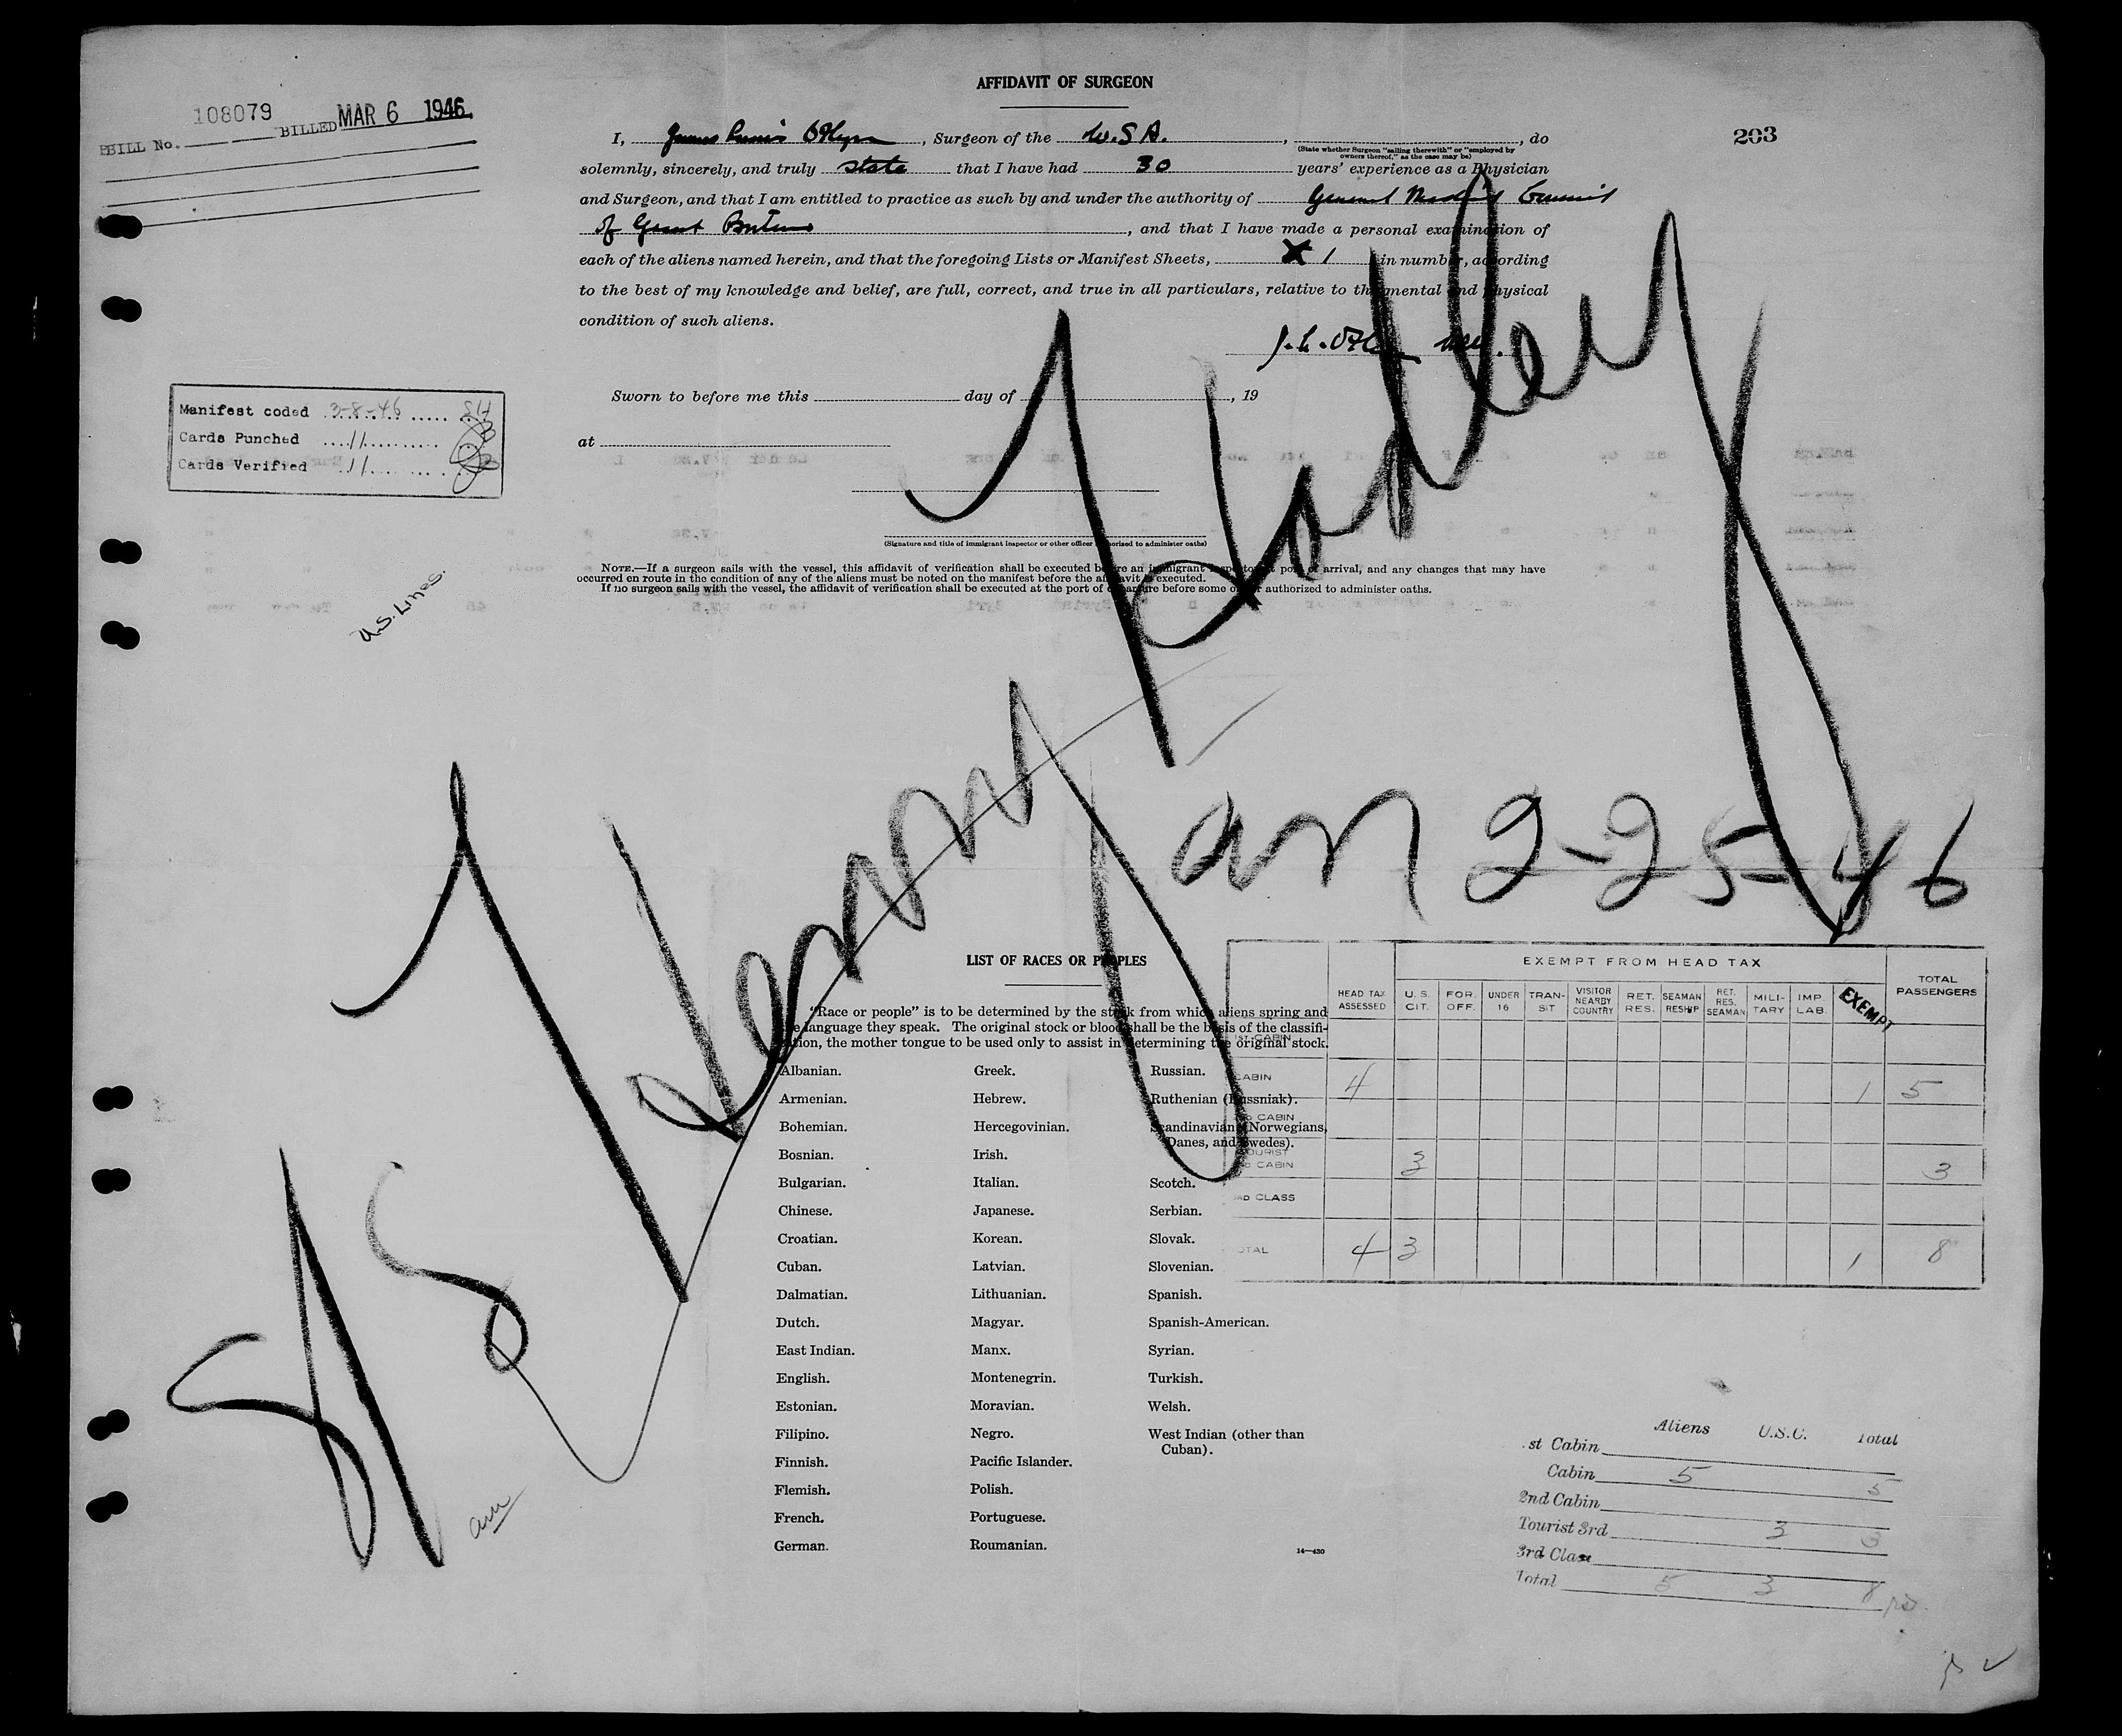 AFFIDAVIT OF SURGEON
108079
BILL No. BILLED MAR 6 1946
203
I, James O'Flynn, Surgeon of the W.S.A., , do
(State whether Surgeon "sailing therewith" or "employed by
owners thereof," as the case may be)
solemnly, sincerely, and truly state that I have had 30 years' experience as a Physician
and Surgeon, and that I am entitled to practice as such by and under the authority of General Medical Council
of Great Britain, and that I have made a personal examination of
each of the aliens named herein, and that the foregoing Lists or Manifest Sheets, 1 in number, according
to the best of my knowledge and belief, are full, correct, and true in all particulars, relative to the mental and physical
condition of such aliens.
Sworn to before me this day of , 19
at
Manifest coded 3-8-46 SH
Cards Punched 11
Cards Verified 11
(Signature and title of immigrant inspector or other officer authorized to administer oaths)
NOTE.—If a surgeon sails with the vessel, this affidavit of verification shall be executed before an immigrant inspector at port of arrival, and any changes that may have
occurred en route in the condition of any of the aliens must be noted on the manifest before the affidavit is executed.
If no surgeon sails with the vessel, the affidavit of verification shall be executed at the port of departure before some officer authorized to administer oaths.
U.S. Lines.
SS Hermon Hadley
arr 2-25-46
LIST OF RACES OR PEOPLES
"Race or people" is to be determined by the stock from which aliens spring and
the language they speak. The original stock or blood shall be the basis of the classifi-
cation, the mother tongue to be used only to assist in determining the original stock.
Albanian. Greek. Russian.
Armenian. Hebrew. Ruthenian (Russniak).
Bohemian. Hercegovinian. Scandinavian (Norwegians,
Danes, and Swedes).
Bosnian. Irish.
Bulgarian. Italian. Scotch.
Chinese. Japanese. Serbian.
Croatian. Korean. Slovak.
Cuban. Latvian. Slovenian.
Dalmatian. Lithuanian. Spanish.
Dutch. Magyar. Spanish-American.
East Indian. Manx. Syrian.
English. Montenegrin. Turkish.
Estonian. Moravian. Welsh.
Filipino. Negro. West Indian (other than
Cuban).
Finnish. Pacific Islander.
Flemish. Polish.
French. Portuguese.
German. Roumanian.
14—430
EXEMPT FROM HEAD TAX
HEAD TAX ASSESSED U.S. CIT. FOR. OFF. UNDER 16 TRAN-SIT VISITOR NEARBY COUNTRY RET. RES. SEAMAN RESHIP RET. RES. SEAMAN MILI-TARY IMP. LAB. EXEMPT TOTAL PASSENGERS
1ST CABIN
CABIN 4 1 5
2D CABIN
TOURIST
3D CABIN 3 3
3RD CLASS
TOTAL 4 3 1 8
Aliens U.S.C. Total
1st Cabin
Cabin 5 5
2nd Cabin
Tourist 3rd 3 3
3rd Class
Total 5 3 8